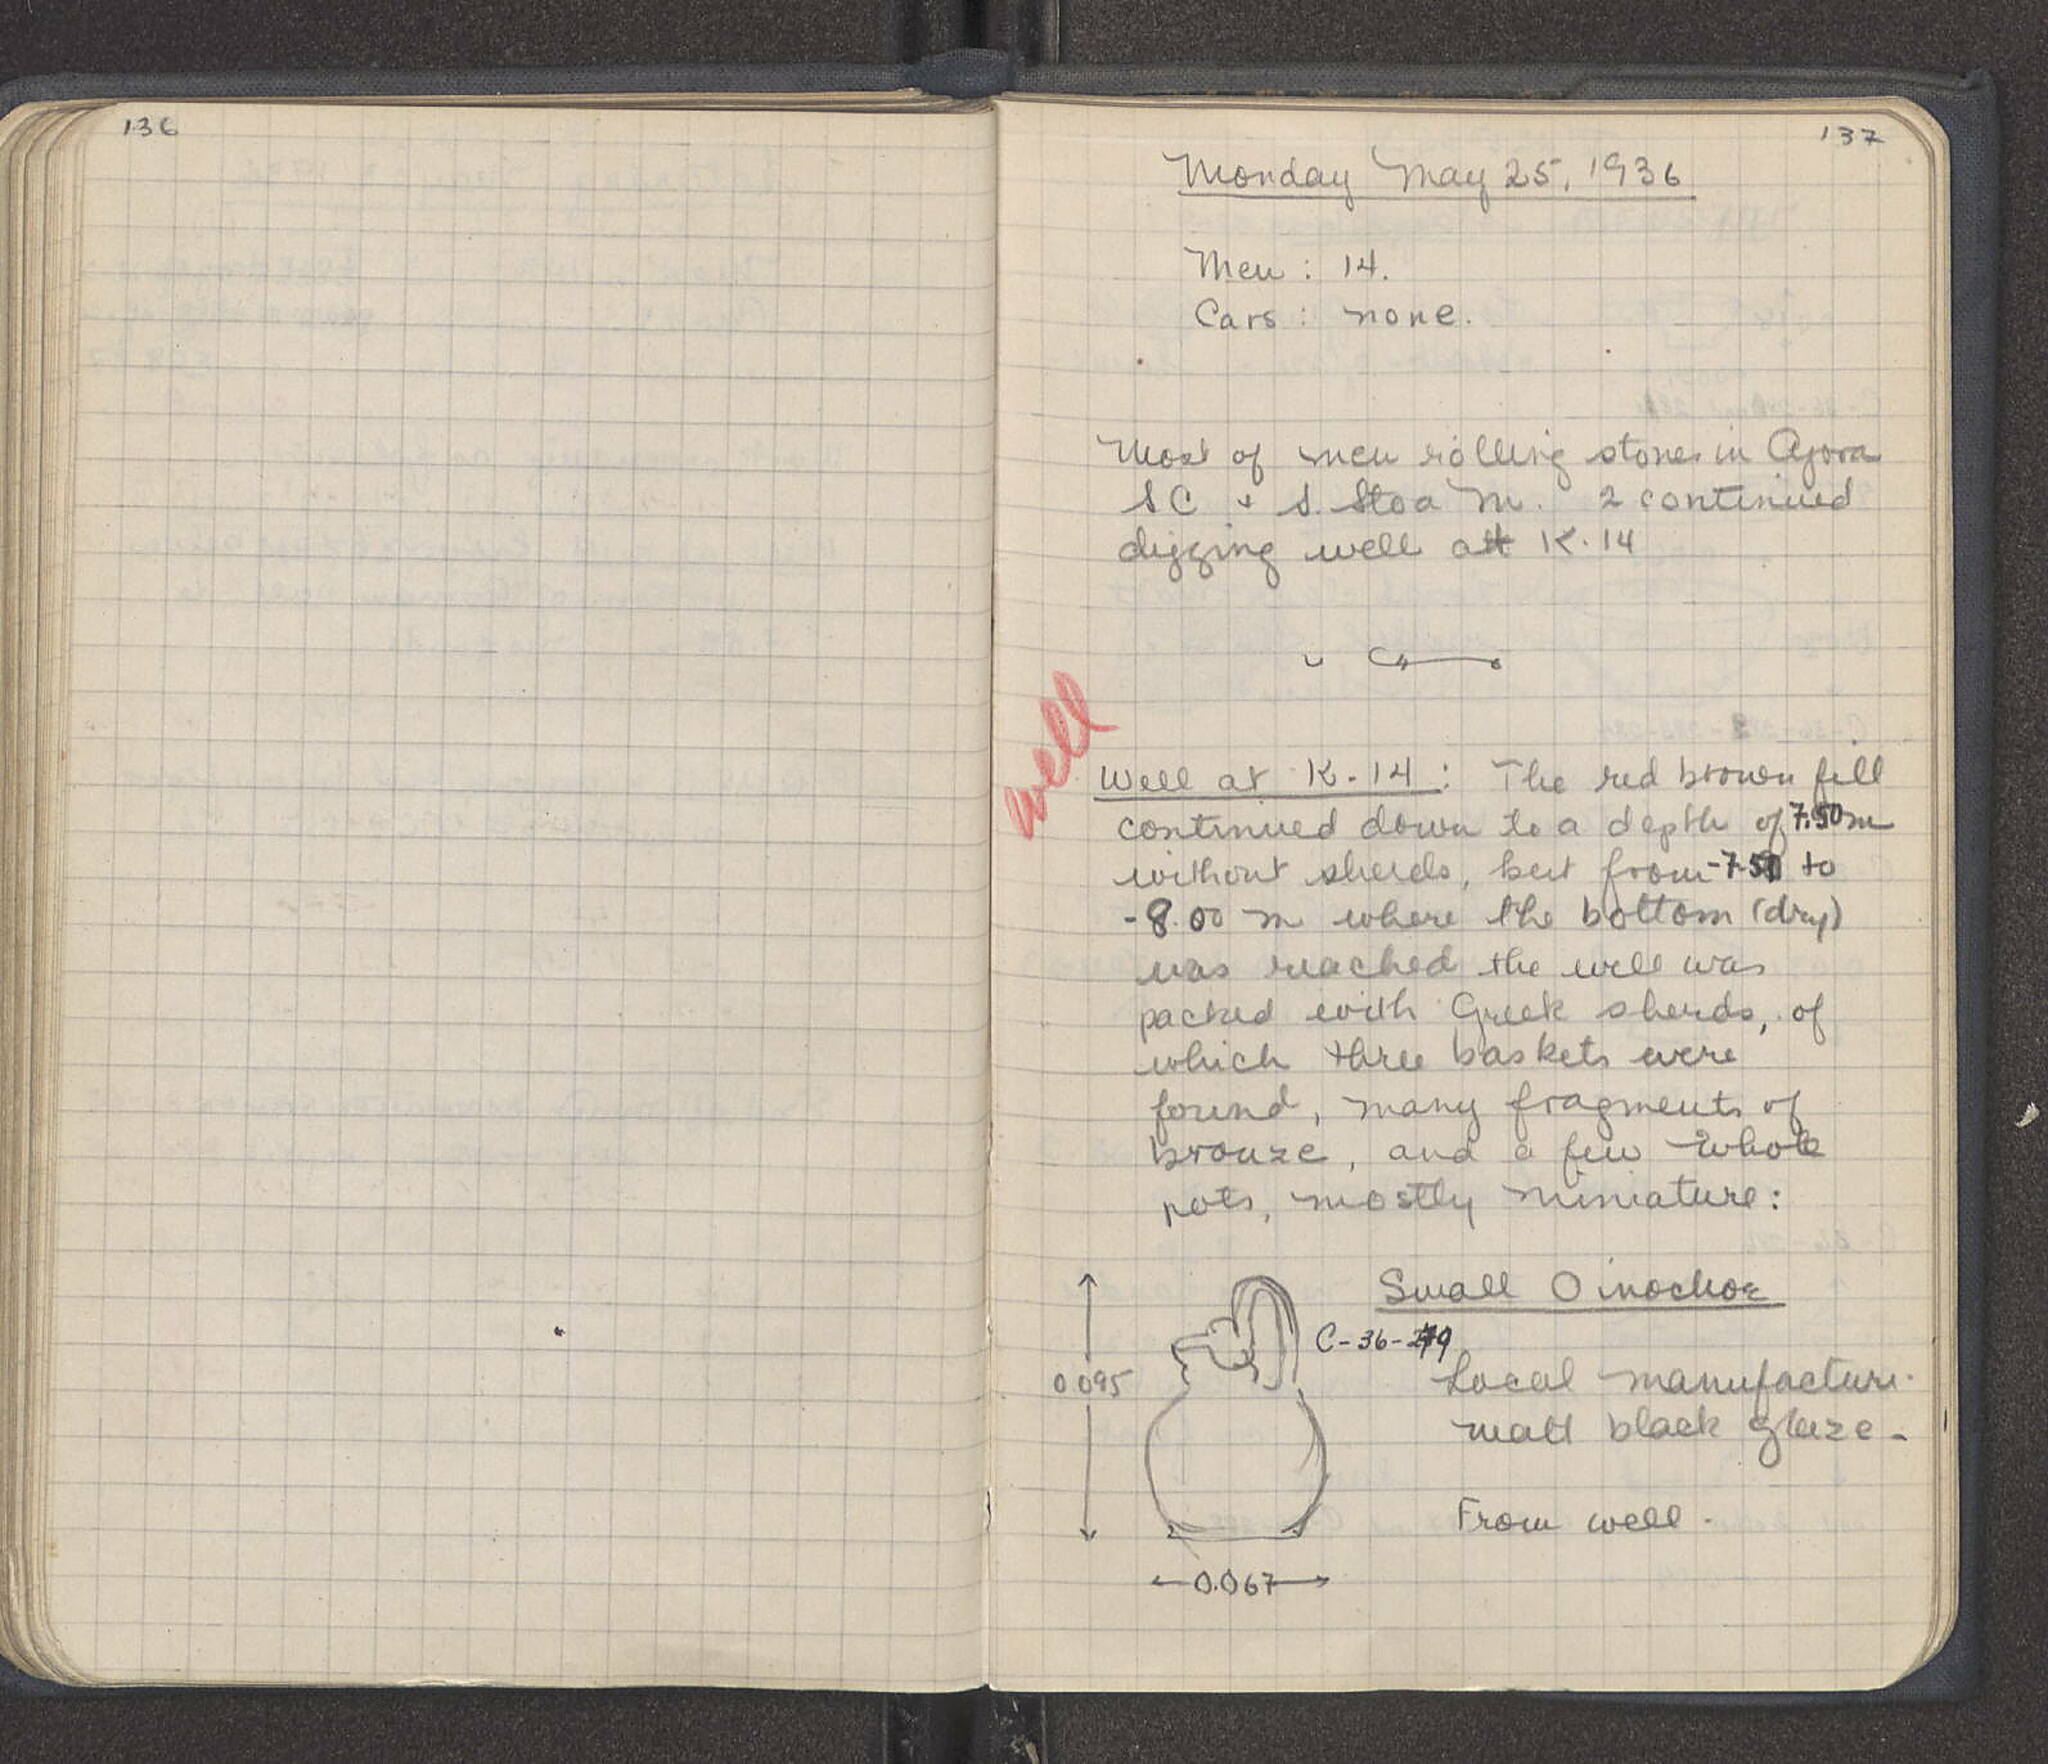 136
137
Monday May 25, 1936
Men : 14.
Cars : none.
Most of men rolling stones in Agora
SC + S. Stoa M. 2 continued
digging well at K-14
well
Well at K-14: The red brown fill
continued down to a depth of 7.50 m
without sherds, but from -7.50 to
-8.00 m where the bottom (dry)
was reached the well was
packed with Greek sherds, of
which three baskets were
found, many fragments of
bronze, and a few whole
pots, mostly miniature:
Small Oinochoe
C-36-
0.095
Local manufacture.
matt black glaze.
From well.
0.067